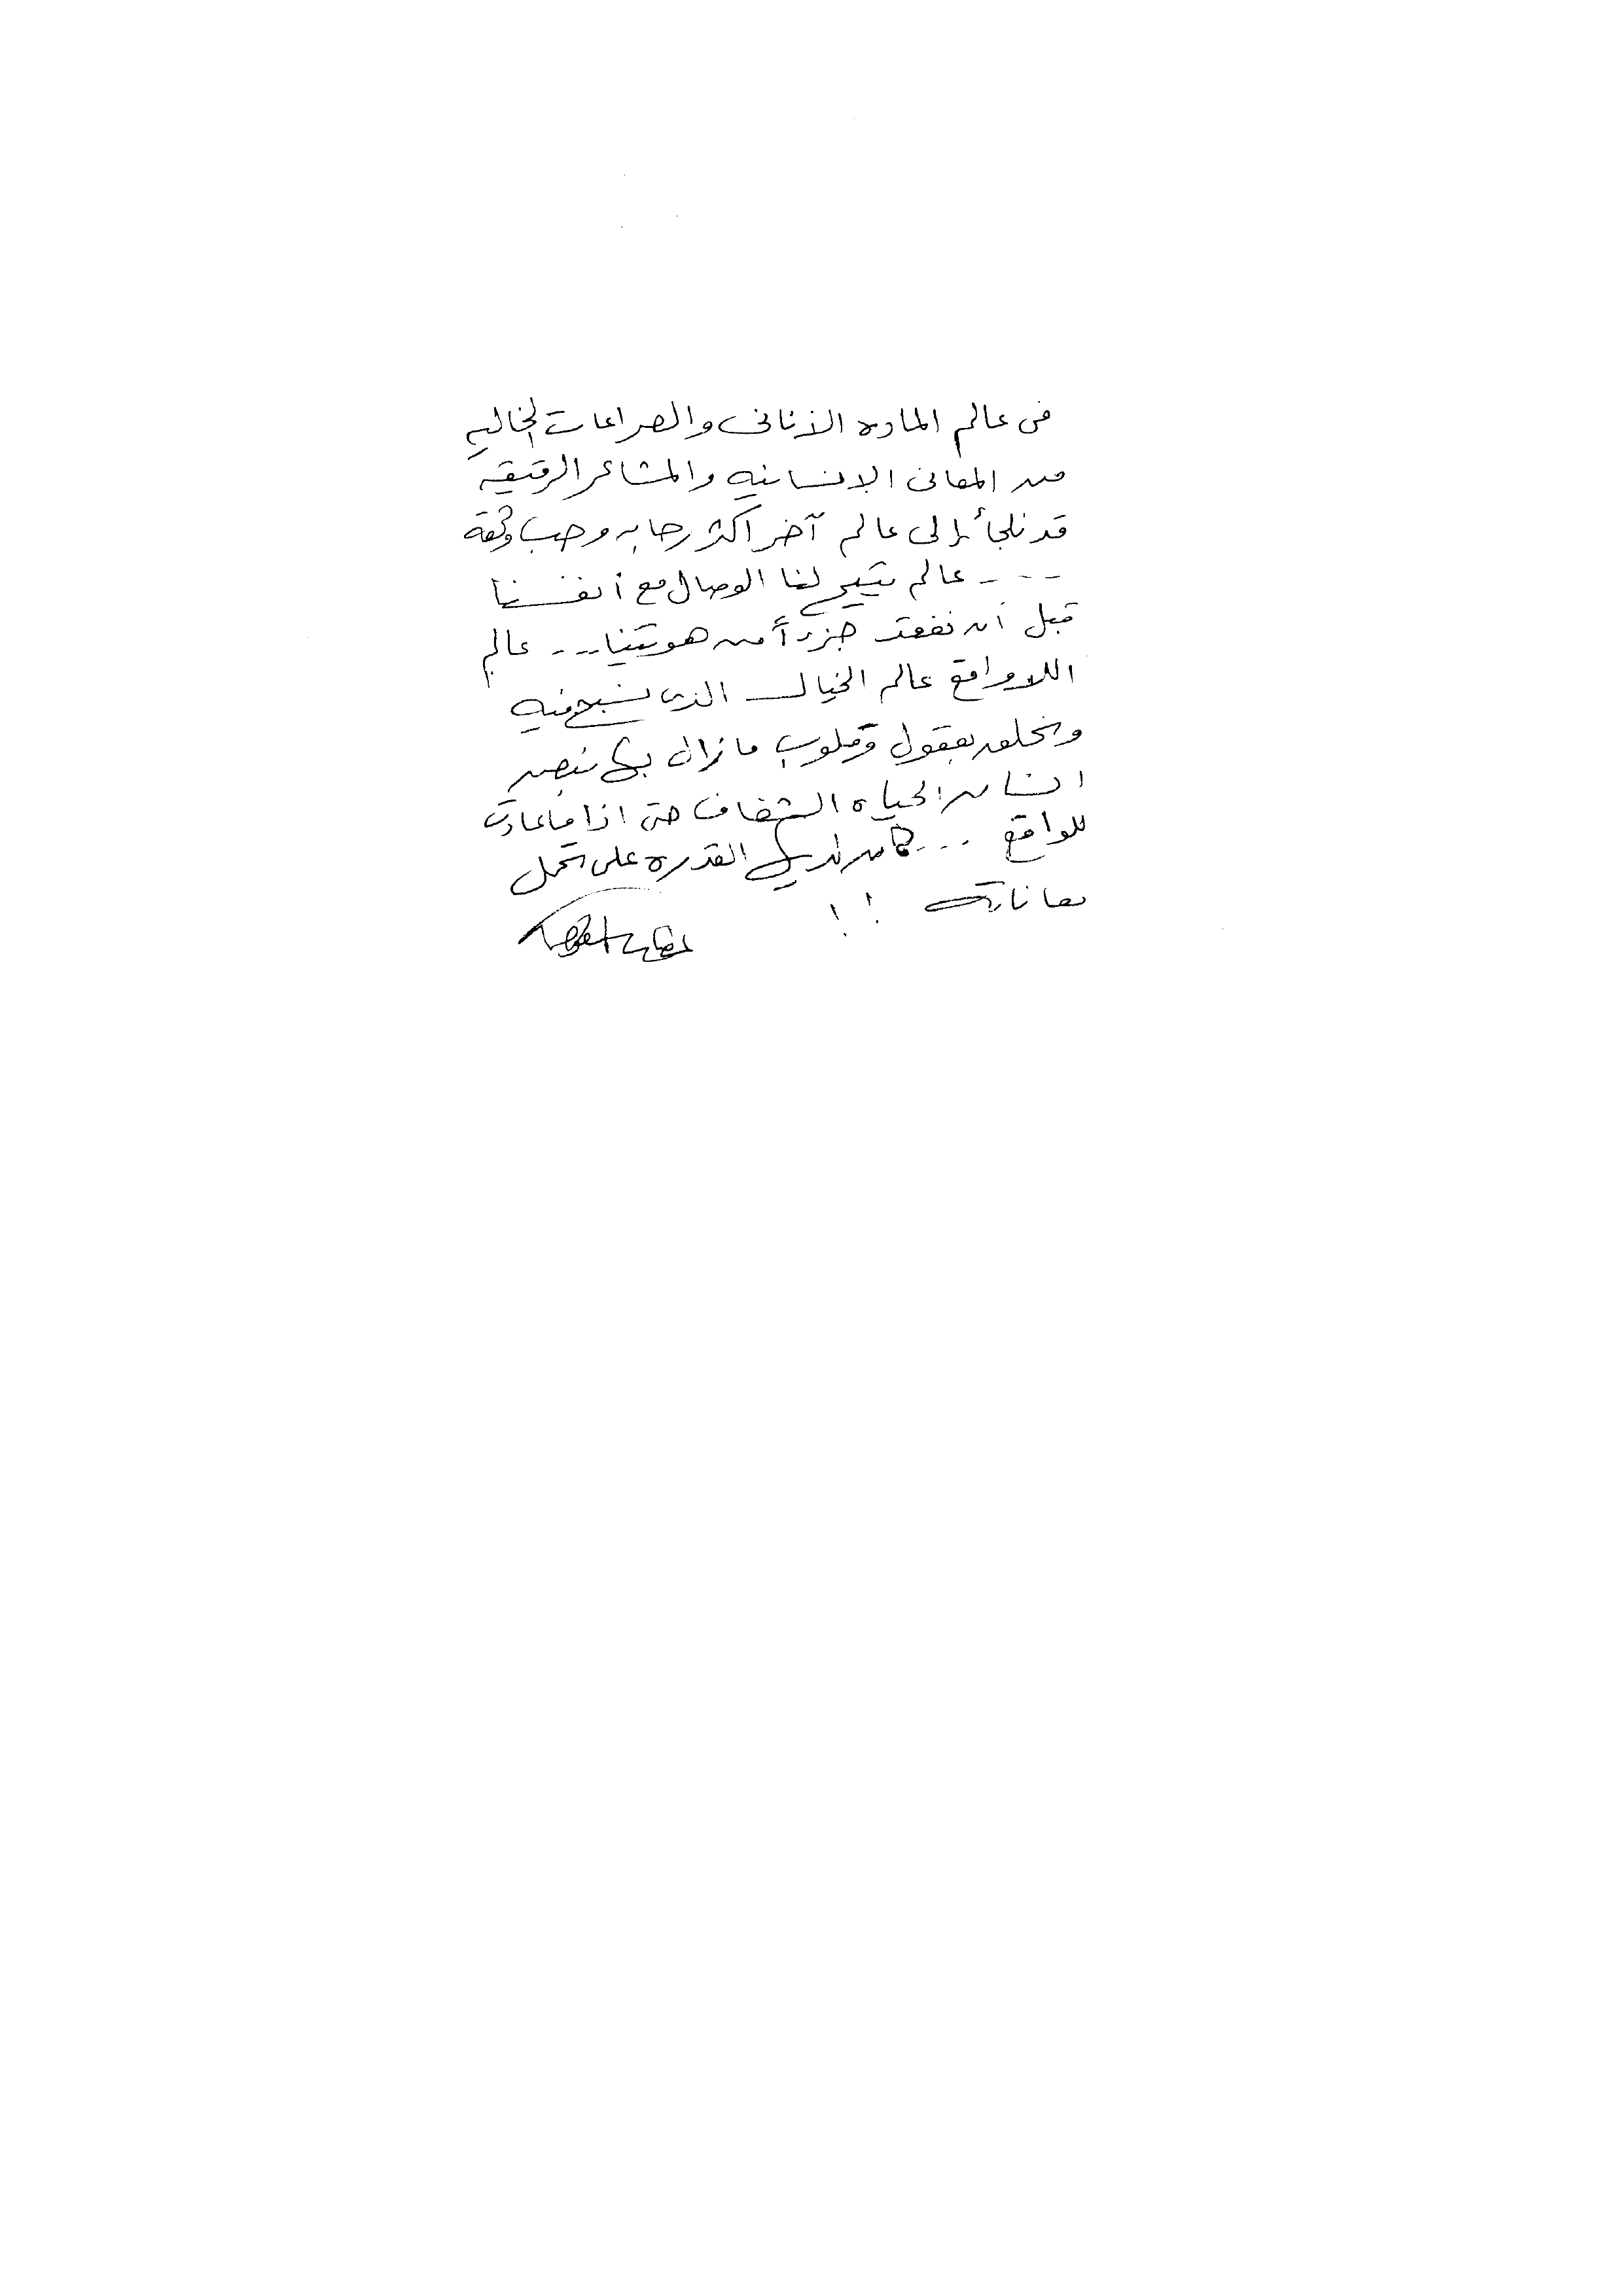 فى عالم الماده الأنانى والصراعات الخاليه
من المعانى الإنسانيه والمشاعر الرقيقه
قد نلجأ إلى عالم آخر اكثر رحابه وحب وثقة
--- عالم يتيح لنا الوصال مع أنفسنا
قبل أن نفقد جزءاً من هويتنا --- عالم
اللاواقع عالم الخيال الذى نسبح فيه
ونحلق بعقول وقلوب مازال بها نبض
انسان الحياه الشفاف حتى اذا ما عادت
للواقع ... كان لديها القدره على تحمل
معاناته !!